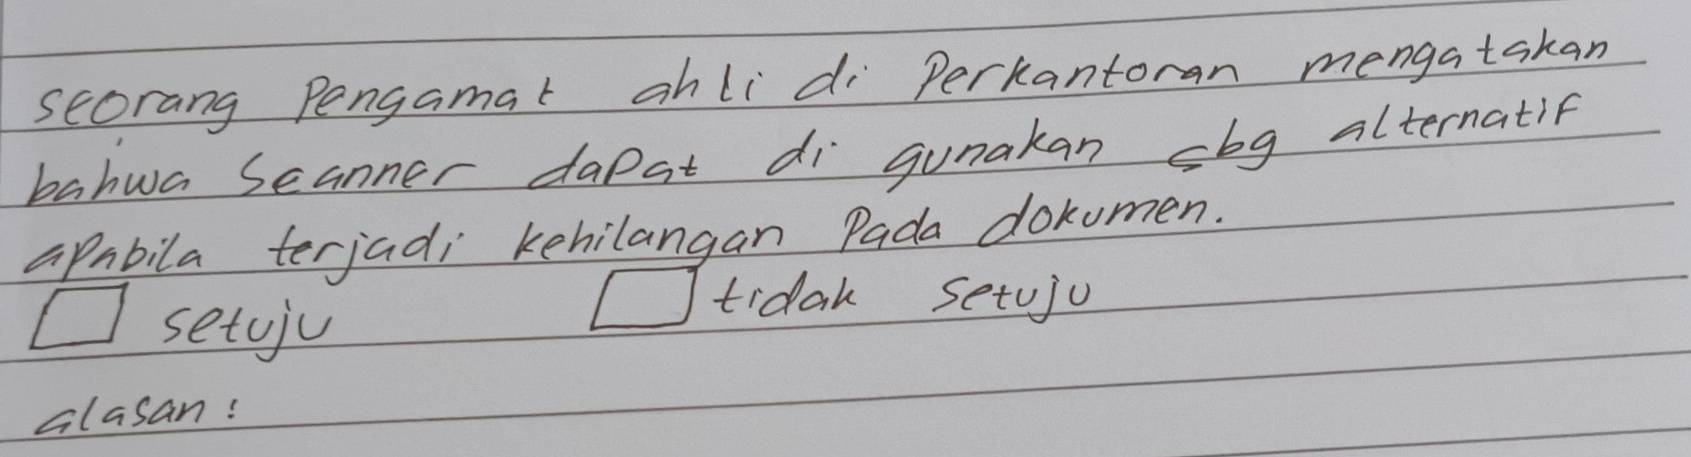 seorang Pengamat ahli di Perkantoran mengatakan
bahwa Scanner dapat di gunakan sbg alternatif
apabila terjadi kehilangan Pada dokumen.
☐ setuju ☐ tidak setuju
alasan: